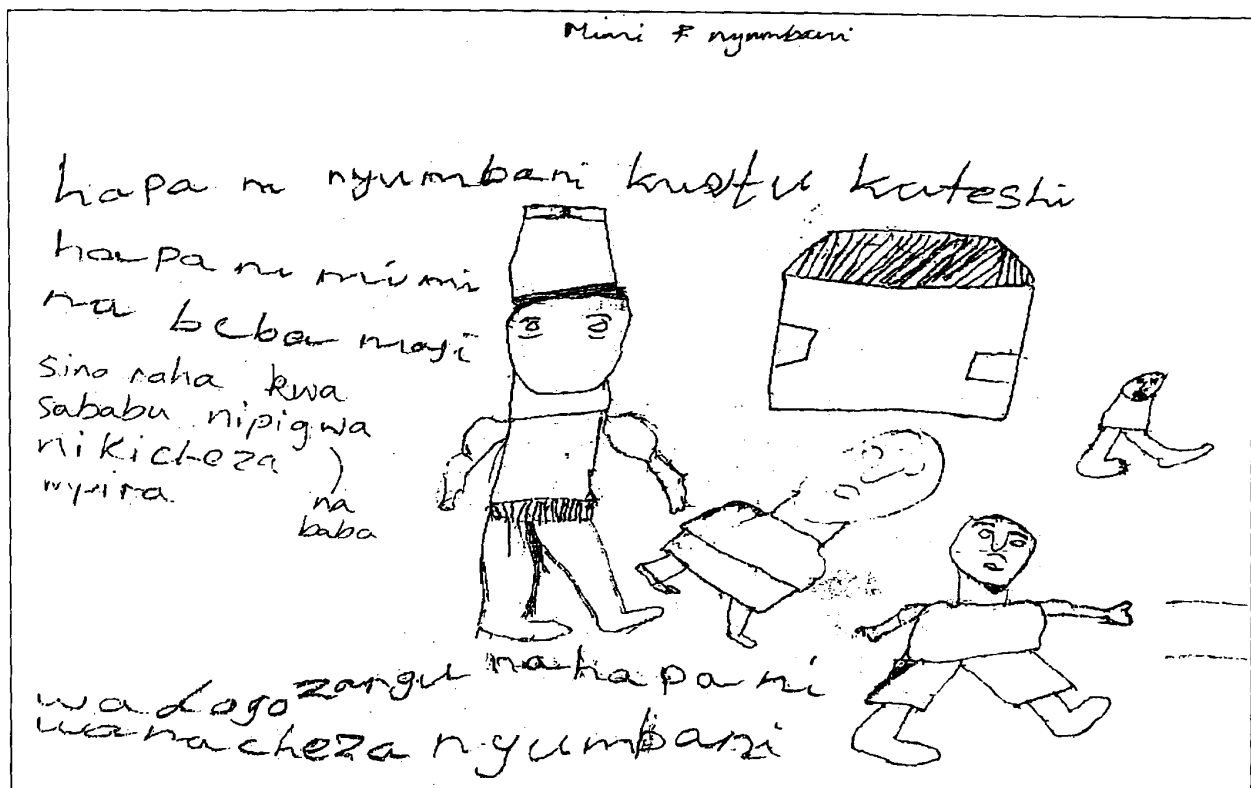 Mimi & nyumbani
hapa ni nyumbani kwetu kateshi
hapa ni mimi
na beba maji
sina raha kwa
sababu nipigwa
nikicheza
mpira
na
baba
wadogo zangu na hapa ni
wanacheza nyumbani